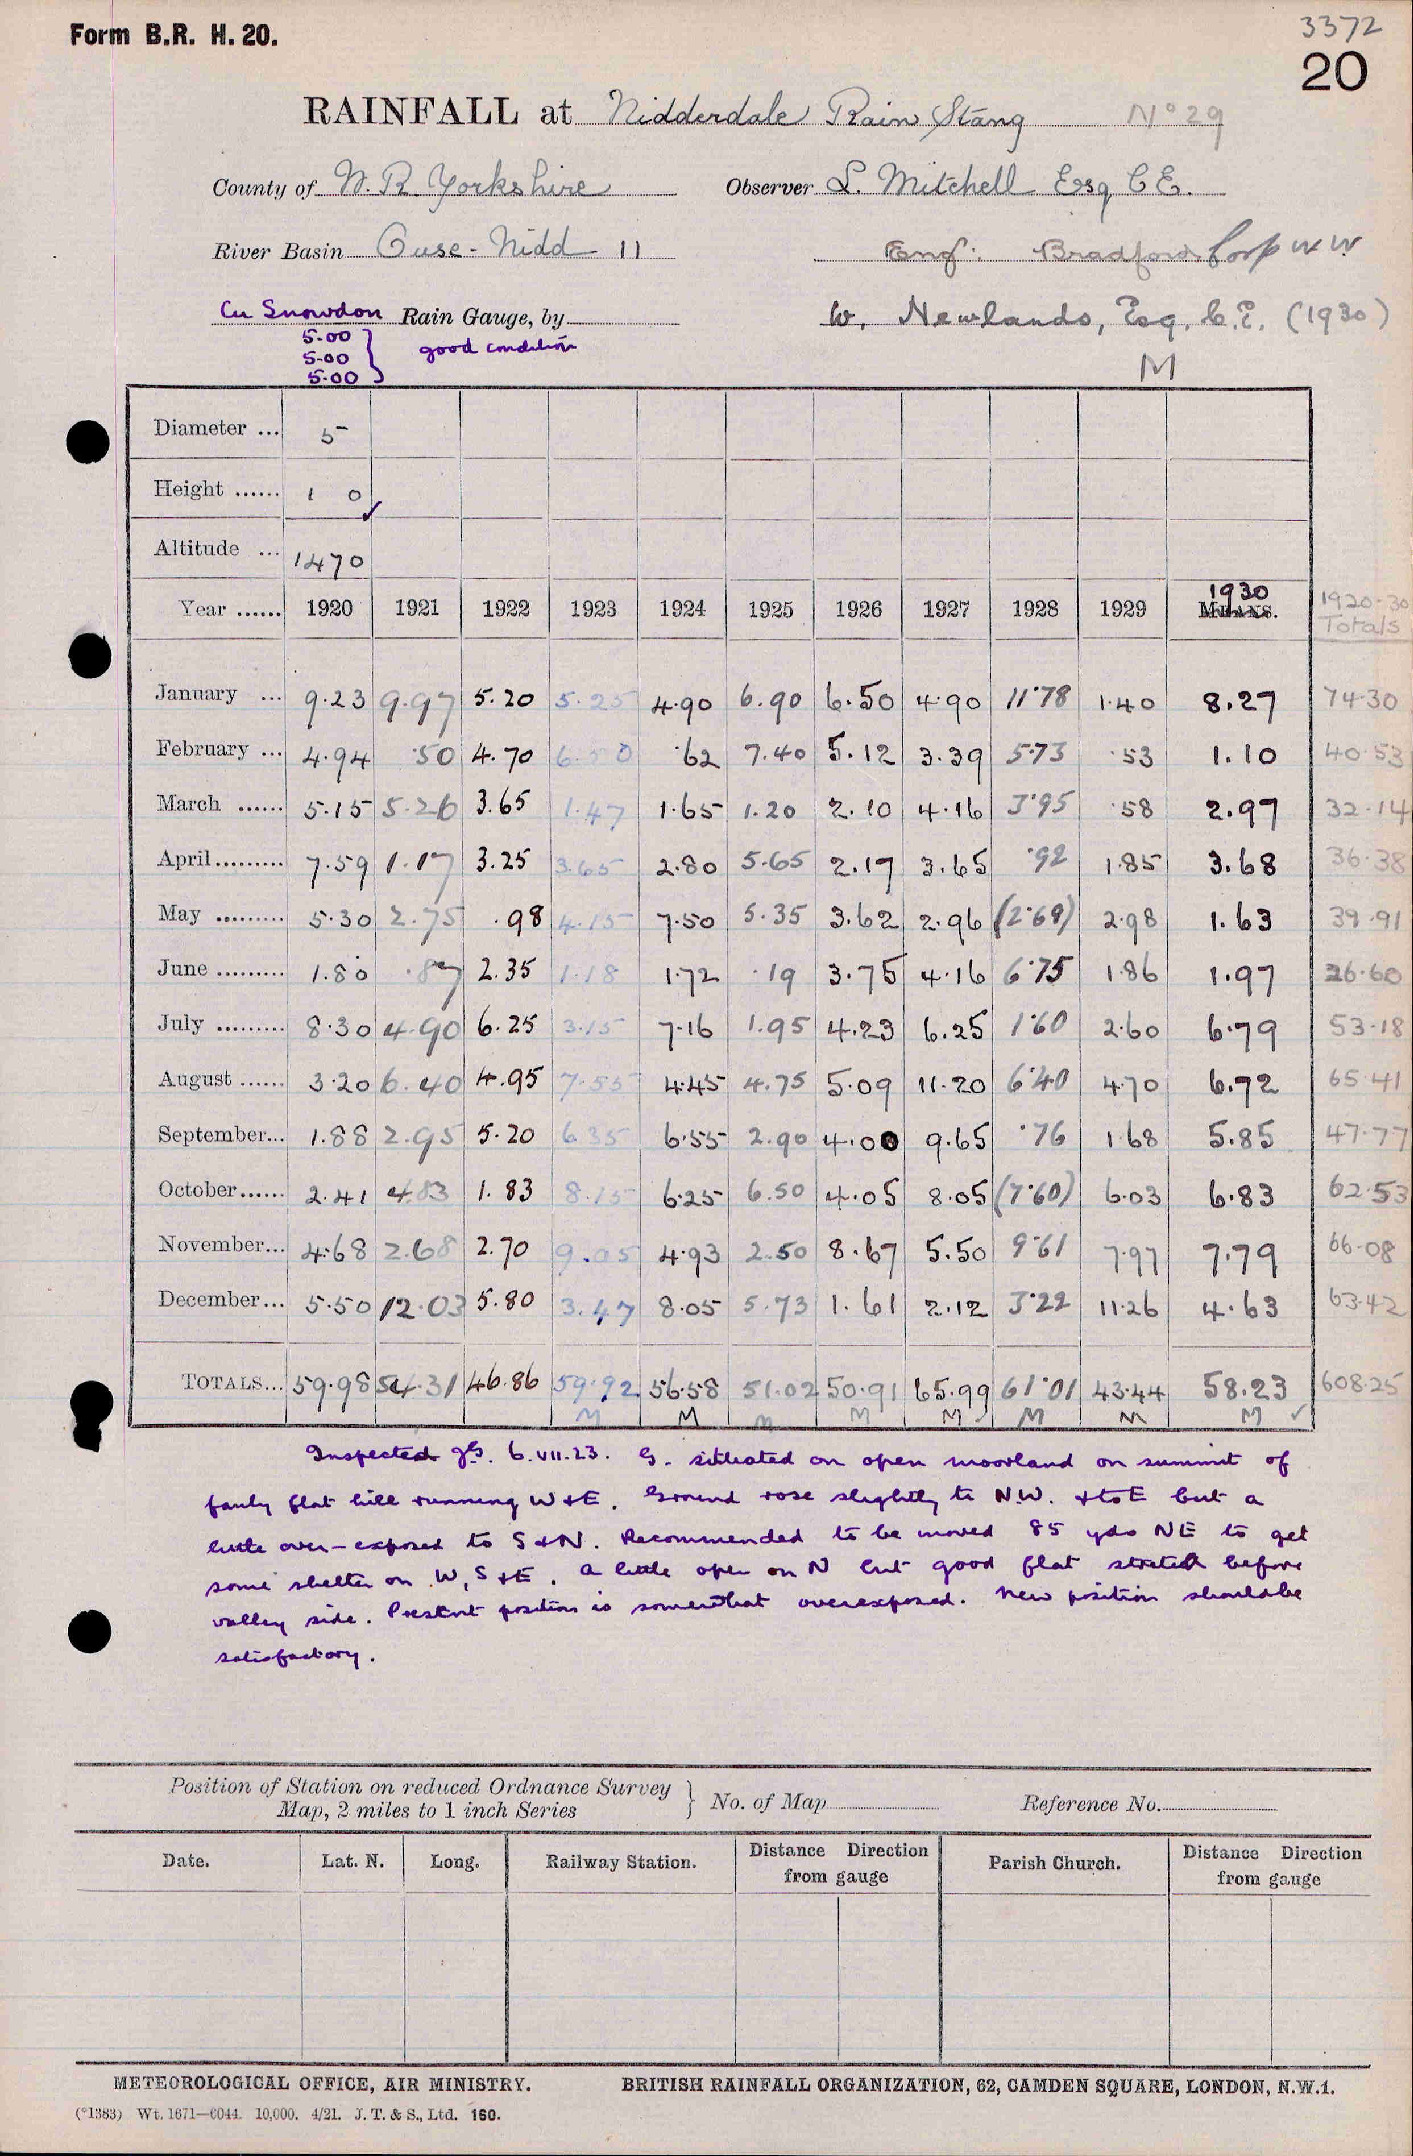 Form B.R. H. 20.
3372
20
RAINFALL at Nidderdale Rain Stang No 29
County of W. R. Yorkshire Observer L. Mitchell Esq C.E.
River Basin Ouse - Nidd 11 Engr. Bradford Corp W W
Cu Snowdon Rain Gauge, by W. Newlands, Esq. C.E. (1930)
5.00
5.00 } good condition
5.00
M
Diameter ... 5
Height ...... 1 0 ✓
Altitude ... 1470
Year ...... 1920 1921 1922 1923 1924 1925 1926 1927 1928 1929 1930 MEANS. 1920-30 Totals
January ... 9.23 9.97 5.20 5.25 4.90 6.90 6.50 4.90 11.78 1.40 8.27 74.30
February ... 4.94 .50 4.70 6.50 .62 7.40 5.12 3.39 5.73 .53 1.10 40.53
March ...... 5.15 5.26 3.65 1.47 1.65 1.20 2.10 4.16 3.95 .58 2.97 32.14
April......... 7.59 1.17 3.25 3.65 2.80 5.65 2.17 3.65 .92 1.85 3.68 36.38
May ......... 5.30 2.75 .98 4.15 7.50 5.35 3.62 2.96 (2.69) 2.98 1.63 39.91
June ......... 1.80 .87 2.35 1.18 1.72 .19 3.75 4.16 6.75 1.86 1.97 26.60
July ......... 8.30 4.90 6.25 3.15 7.16 1.95 4.23 6.25 1.60 2.60 6.79 53.18
August ...... 3.20 6.40 4.95 7.55 4.45 4.75 5.09 11.20 6.40 4.70 6.72 65.41
September... 1.88 2.95 5.20 6.35 6.55 2.90 4.00 9.65 .76 1.68 5.85 47.77
October...... 2.41 4.83 1.83 8.15 6.25 6.50 4.05 8.05 (7.60) 6.03 6.83 62.53
November... 4.68 2.68 2.70 9.05 4.93 2.50 8.67 5.50 9.61 7.97 7.79 66.08
December... 5.50 12.03 5.80 3.47 8.05 5.73 1.61 2.12 3.22 11.26 4.63 63.42
TOTALS... 59.98 54.31 46.86 59.92 56.58 51.02 50.91 65.99 61.01 43.44 58.23 608.25
M M M M M ✓ M M M ✓
Inspected 6.VII.23. G. situated on open moorland on summit of
fairly flat hill running W & E. Ground rose slightly to N.W. & to E but a
little over-exposed to S & N. Recommended to be moved 85 yds NE to get
some shelter on W, S & E. A little open on N but good flat stretch before
valley side. Present position is somewhat overexposed. New position should be
satisfactory.
Position of Station on reduced Ordnance Survey
Map, 2 miles to 1 inch Series } No. of Map Reference No.
Date. Lat. N. Long. Railway Station. Distance Direction from gauge Parish Church. Distance Direction from gauge
METEOROLOGICAL OFFICE, AIR MINISTRY. BRITISH RAINFALL ORGANIZATION, 62, CAMDEN SQUARE, LONDON, N.W.1.
(*1383) Wt. 1671—6044. 10,000. 4/21. J. T. & S., Ltd. 160.